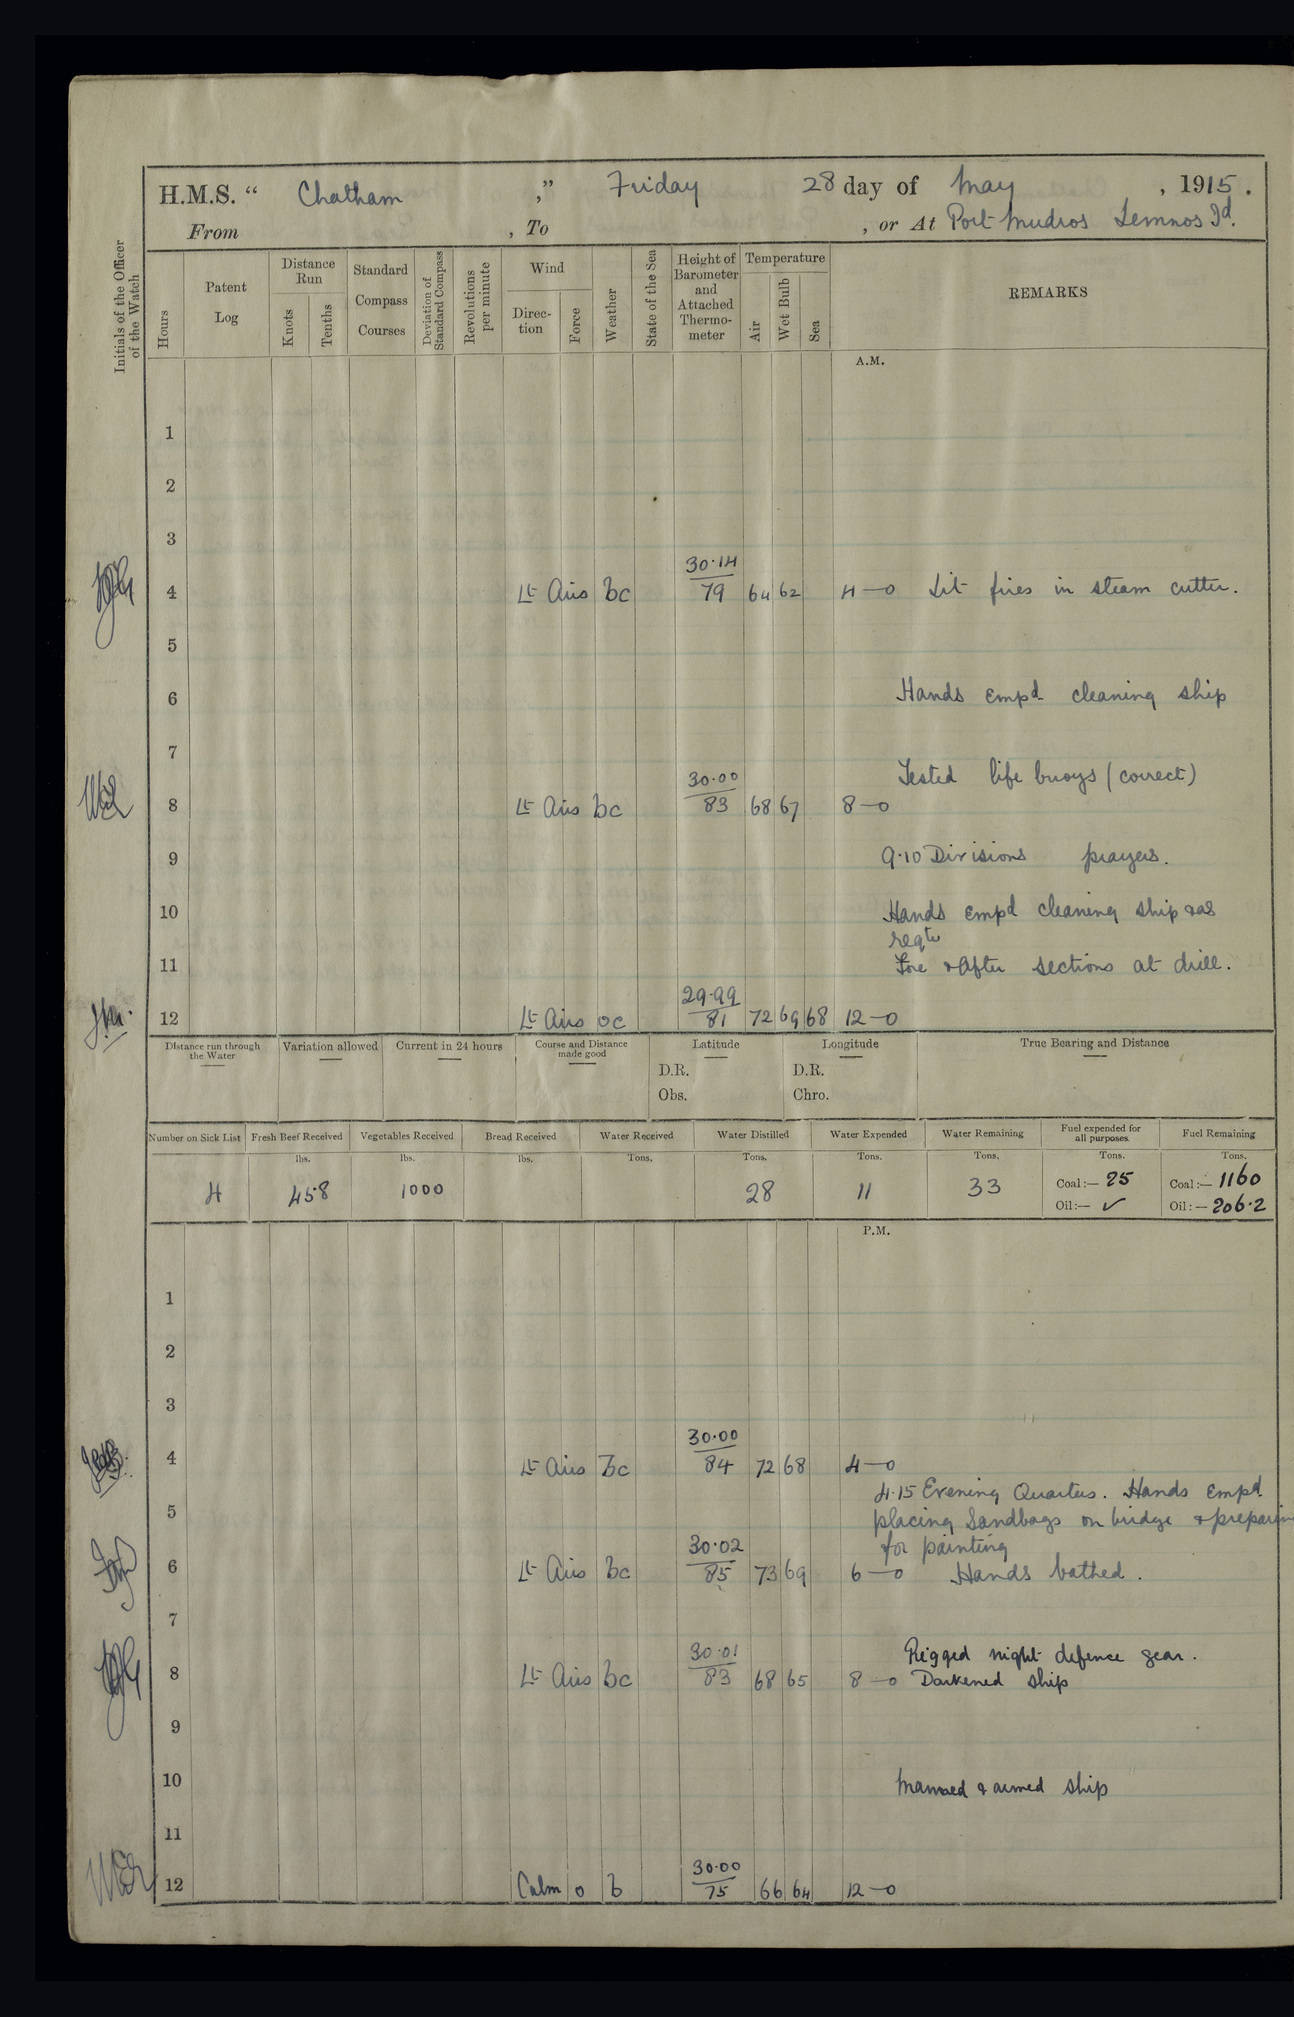 H.M.S. “ Chatham ,” Friday 28 day of May , 1915.
From , To , or At Port Mudros Lemnos Id.
Initials of the Officer of the Watch
Hours
Patent Log
Distance Run
Knots
Tenths
Standard Compass Courses
Deviation of Standard Compass
Revolutions per minute
Wind
Direction
Force
Weather
State of the Sea
Height of Barometer and Attached Thermometer
Temperature
Air
Wet Bulb
Sea
REMARKS
A.M.
1
2
3
30·14
4 Lt Airs bc 79 64 62 4—0 Lit fires in steam cutter.
5
6 Hands empd cleaning ship
7
Tested life buoys (correct)
30·00
8 Lt Airs bc 83 68 67 8—0
9 9·10 Divisions prayers.
10 Hands empd cleaning ship & as
reqte
11 Fore & After sections at drill.
29·99
12 Lt Airs oc 81 72 69 68 12—0
Distance run through the Water
Variation allowed
Current in 24 hours
Course and Distance made good
Latitude
D.R.
Obs.
Longitude
D.R.
Chro.
True Bearing and Distance
Number on Sick List Fresh Beef Received Vegetables Received Bread Received Water Received Water Distilled Water Expended Water Remaining Fuel expended for all purposes. Fuel Remaining
lbs. lbs. lbs. Tons. Tons. Tons. Tons. Tons. Tons.
4 458 1000 28 11 33 Coal:— 25 Coal:— 1160
Oil:— ✓ Oil:— 206·2
P.M.
1
2
3
30·00
4 Lt Airs bc 84 72 68 4—0
4·15 Evening Quarters. Hands empd
5 placing Sandbags on bridge & preparin
for painting
30·02
6 Lt Airs bc 85 73 69 6—0 Hands bathed.
7
30·01
Rigged night defence gear.
8 Lt Airs bc 83 68 65 8—0 Darkened ship
9
10 Manned & armed ship
11
30·00
12 Calm 0 b 75 66 64 12—0